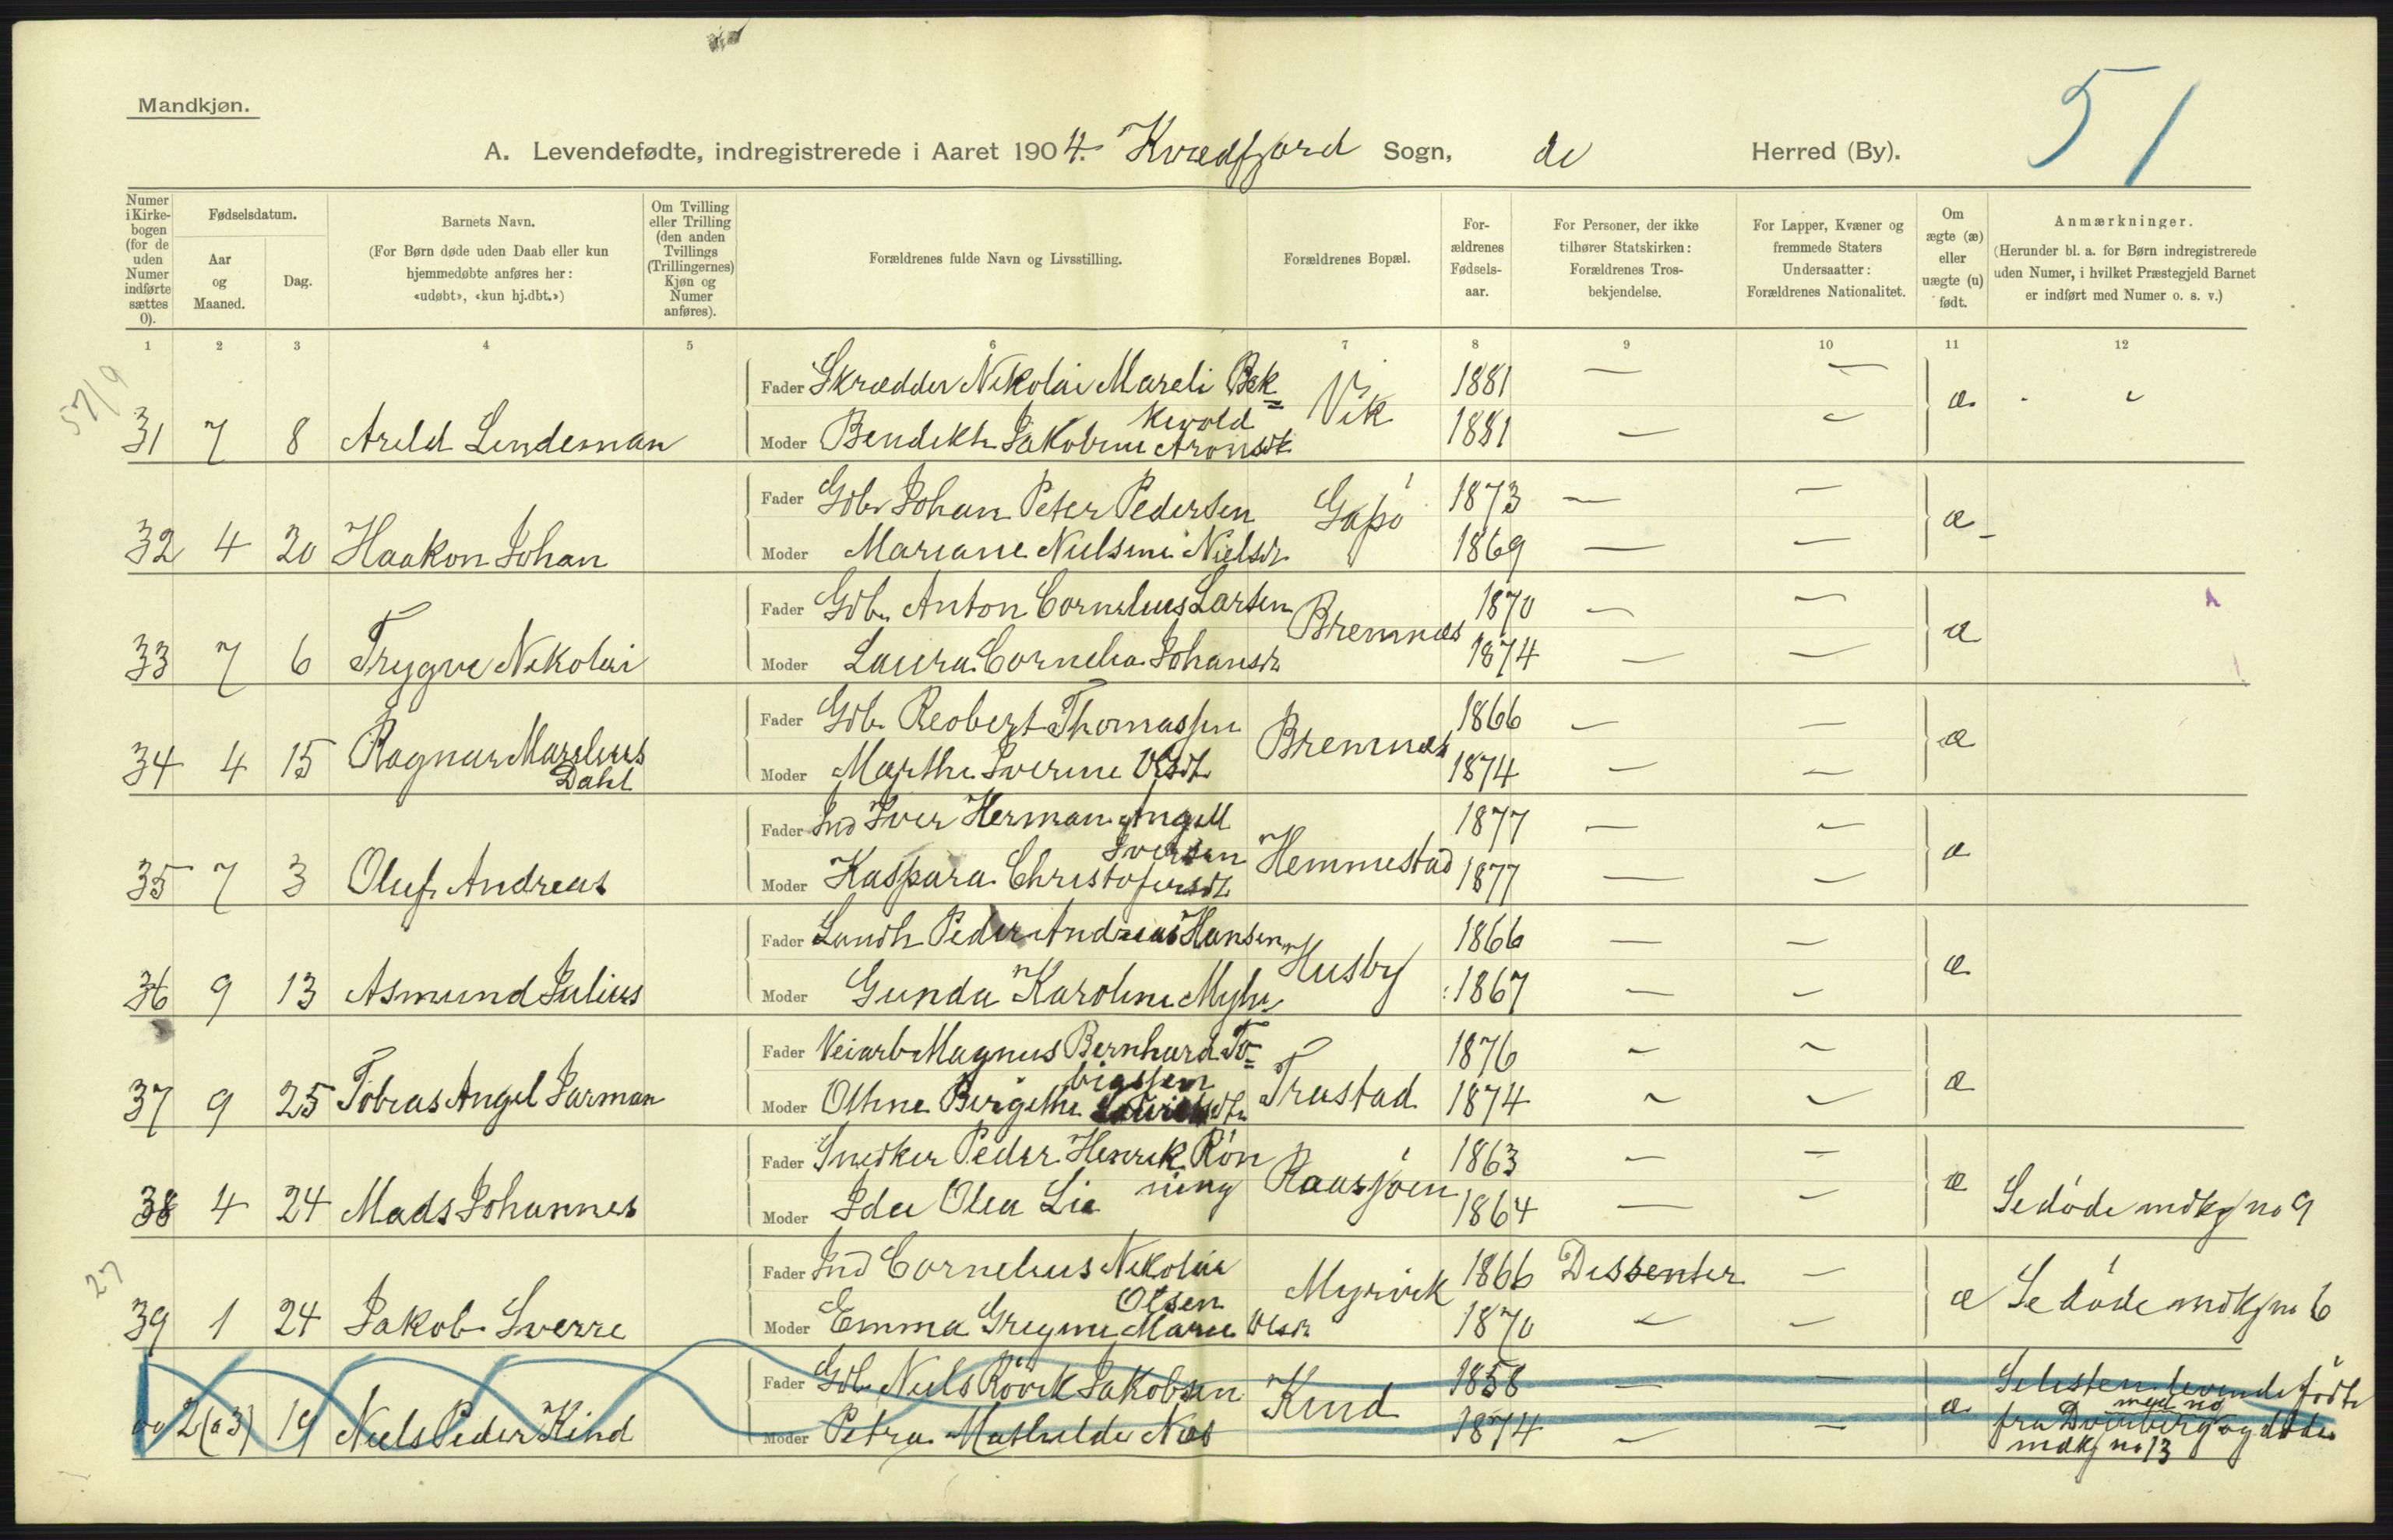 Mandkjøn.
51
A. Levendefødte, indregistrerede i Aaret 1904. Kvædfjord Sogn, do Herred (By).
Numer i Kirkebogen (for de uden Numer indførte sættes 0).
Fødselsdatum.
Aar og Maaned.
Dag.
Barnets Navn.
(For Børn døde uden Daab eller kun hjemmedøbte anføres her: «udøbt», «kun hj.dbt.»)
Om Tvilling eller Trilling (den anden Tvillings (Trillingernes) Kjøn og Numer anføres).
Forældrenes fulde Navn og Livsstilling.
Forældrenes Bopæl.
Forældrenes Fødselsaar.
For Personer, der ikke tilhører Statskirken: Forældrenes Trosbekjendelse.
For Lapper, Kvæner og fremmede Staters Undersaatter: Forældrenes Nationalitet.
Om ægte (æ) eller uægte (u) født.
Anmærkninger.
(Herunder bl. a. for Børn indregistrerede uden Numer, i hvilket Præstegjeld Barnet er indført med Numer o. s. v.)
1 2 3 4 5 6 7 8 9 10 11 12
57/9
31 7 8 Arild Lindeman Fader Skrædder Nikolai Mareli Bek= Vik 1881 — — æ
kevold
Moder Bendikte Jakobine Aronsdt 1881 — —
32 4 20 Haakon Johan Fader Gdbr Johan Peter Pedersen Gapø 1873 — — æ
Moder Mariane Nielsine Nielsdr 1869 — —
33 7 6 Trygve Nikolai Fader Gdbr Anton Cornelius Larsen Bremnæs 1870 — — æ
Moder Laura Cornelia Johansdr 1874 — —
34 4 15 Ragnar Marelius Dahl Fader Gdbr Reobert Thomassen Bremnæs 1866 — — æ
Moder Marthe Iverine Olsdt 1874 — —
35 7 3 Oluf Andreas Fader Ind Iver Herman Angell Hemmestad 1877 — — æ
Iversen
Moder Kaspara Christofersdt 1877 — —
36 9 13 Asmund Julius Fader Landh Peder Andreas Hansen Husby 1866 — — æ
Moder Gunda Karoline Myhr 1867 — —
37 9 25 Tobias Angel Jarman Fader Veiarb Magnus Bernhard To= Trastad 1876 — — æ
biassen
Moder Othine Birgithe 1874 — —
38 4 24 Mads Johannes Fader Snedker Peder Henrik Røn Raasjøen 1863 — — æ
ning
Moder Ida Olea Lie 1864 — — Se døde mdkj no 9
27
39 1 24 Jakob Sverre Fader Ind Cornelius Nikolai Myrvik 1866 Dissenter — æ Se døde mdkj no 6
Olsen
Moder Emma Gregine Marie Olsdr 1870 — —
2(a3) 19 Niels Peder Kind Fader Gdbr Niels Rørvik Jakobsen Kind 1858 — — æ
Moder Petra Mathilde Næs 1874 — —
Se listen levende fødte
med no
fra Dverberg og døde
mdkj no 13